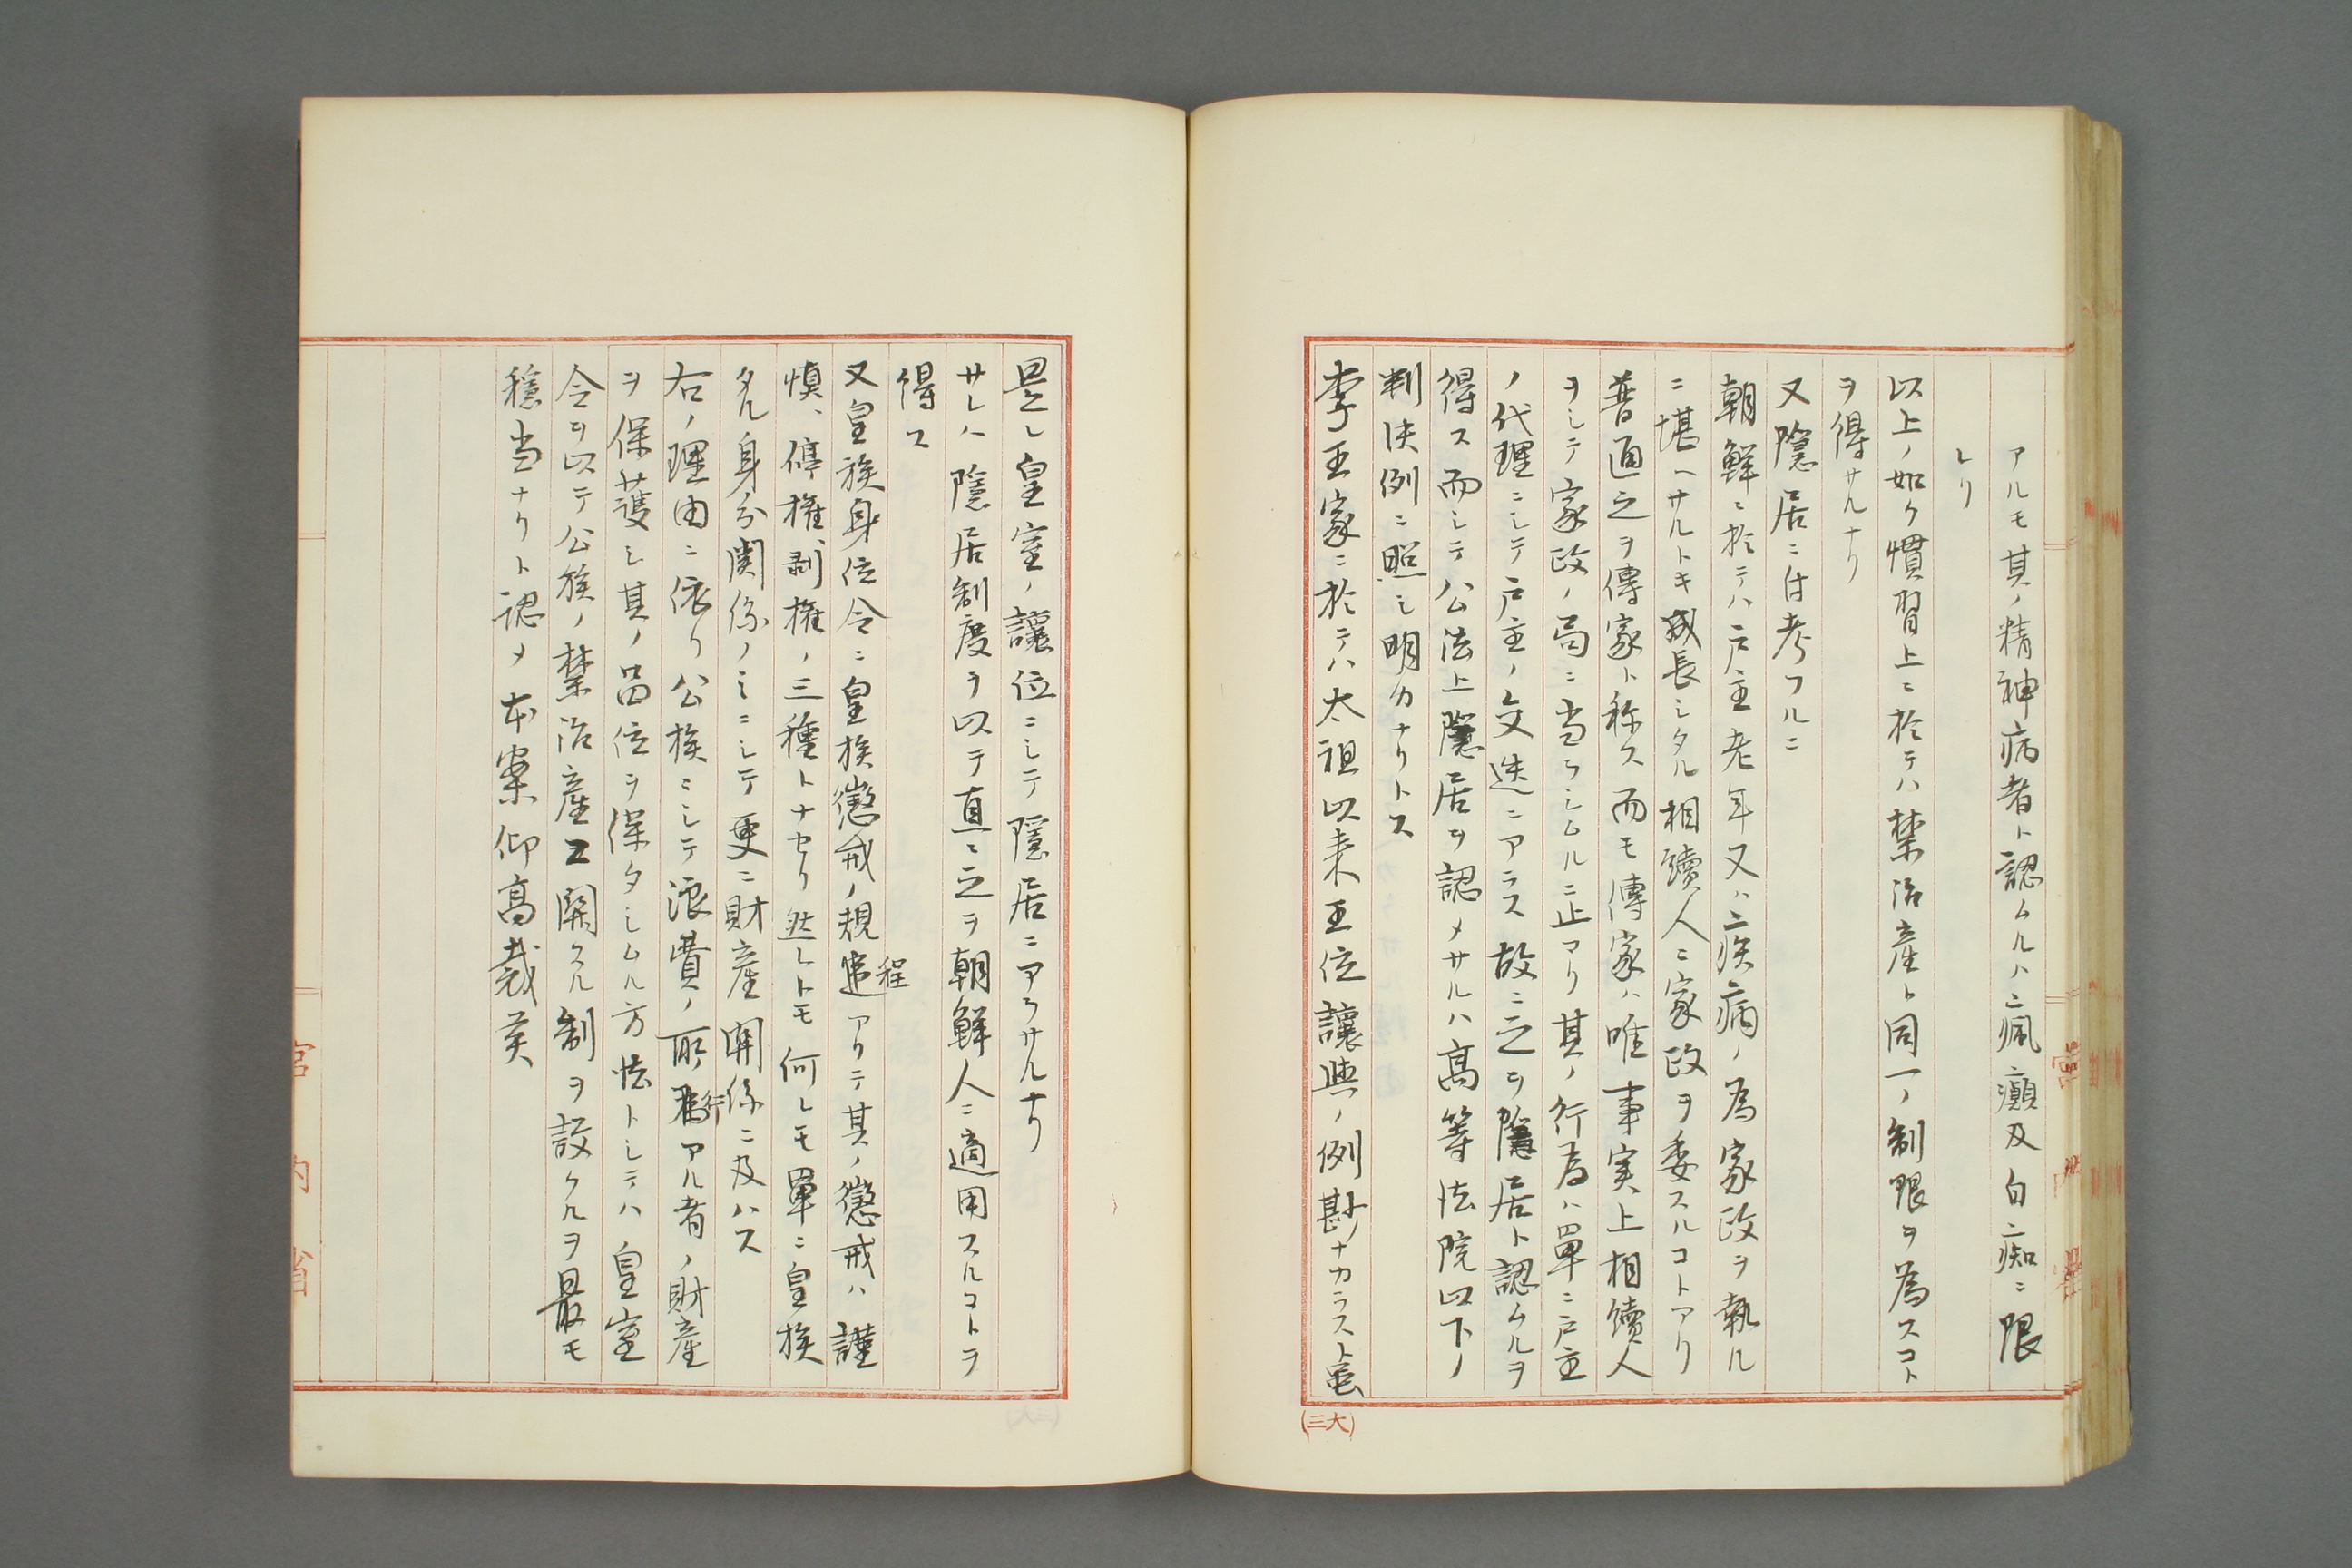 アルモ其ノ精神病者ト認ムルハ瘋癲及白痴ニ限
レリ
以上ノ如ク慣習上ニ於テハ禁治産ト同一ノ制限ヲ為スコト
ヲ得サルナリ
又隠居ニ付考フルニ
朝鮮ニ於テハ戸主老年又ハ疾病ノ為家政ヲ執ル
ニ堪ヘサルトキ成長シタル相續人ニ家政ヲ委スルコトアリ
普通之ヲ傳家ト称ス而モ傳家ハ唯事実上相續人
ヲシテ家政ノ局ニ当ラシムルニ止マリ其ノ行為ハ單ニ戸主
ノ代理ニシテ戸主ノ交迭ニアラス故ニ之ヲ隠居ト認ムルヲ
得ス而シテ公法上隠居ヲ認メサルハ高等法院以下ノ
判决例ニ照シ明カナリトス
李王家ニ於テハ太祖以来王位讓與ノ例尠ナカラスト雖
(大三)
是レ皇室ノ讓位ニシテ隠居ニアラサルナリ
サレハ隠居制度ヲ以テ直ニ之ヲ朝鮮人ニ適用スルコトヲ
得ス
又皇族身位令ニ皇族懲戒ノ規程アリテ其ノ懲戒ハ謹
慎、停権、剥権ノ三種トナセリ然レトモ何レモ單ニ皇族
タル身分関係ノミニシテ更ニ財産関係ニ及ハス
右ノ理由ニ依リ公族ニシテ浪費ノ所行アル者ノ財産
ヲ保護シ其ノ品位ヲ保タシムル方法トシテハ皇室
令ヲ以テ公族ノ禁治産ニ関スル制ヲ設クルヲ最モ
穏当ナリト認メ本案仰高裁矣
宮内省